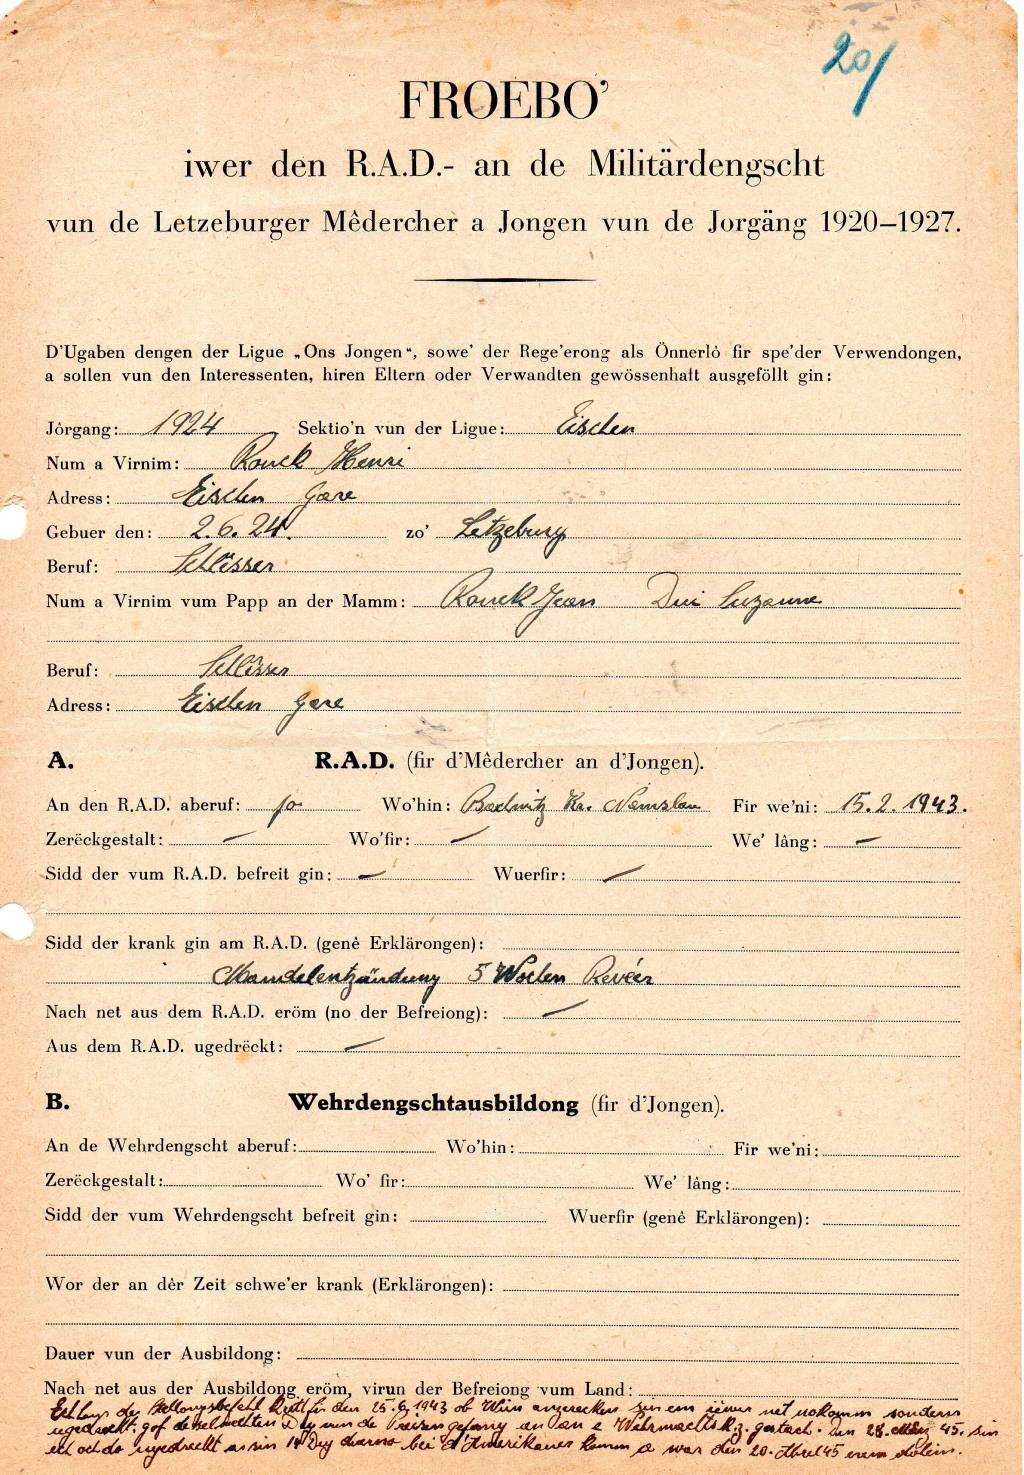 20/
FROEBO'
iwer den R.A.D.- an de Militärdengscht
vun de Letzeburger Mêdercher a Jongen vun de Jorgäng 1920–1927.
D'Ugaben dengen der Ligue „Ons Jongen“, sowe' der Rege'erong als Önnerlô fir spe'der Verwendongen,
a sollen vun den Interessenten, hiren Eltern oder Verwandten gewössenhaft ausgefôllt gin:
Jôrgang: 1924 Sektio'n vun der Ligue: Eischen
Num a Virnim: Rouck Henri
Adress: Eischen Gare
Gebuer den: 2.6.24. zo' Letzeburg
Beruf: Schlösser
Num a Virnim vum Papp an der Mamm: Rouck Jean Suzanne
Beruf: Schlösser
Adress: Eischen Gare
A. R.A.D. (fir d'Mêdercher an d'Jongen).
An den R.A.D. aberuf: jo Wo'hin: Kr. Namslau Fir we'ni: 15.2.1943.
Zerëckgestalt: — Wo'fir: — We' lâng: —
Sidd der vum R.A.D. befreit gin: — Wuerfir: —
Sidd der krank gin am R.A.D. (genê Erklärongen):
Mandelentzündung 5 Wochen Revéer
Nach net aus dem R.A.D. eröm (no der Befreiong): —
Aus dem R.A.D. ugedrëckt: —
B. Wehrdengschtausbildong (fir d'Jongen).
An de Wehrdengscht aberuf: Wo'hin: Fir we'ni:
Zerëckgestalt: Wo' fir: We' lâng:
Sidd der vum Wehrdengscht befreit gin: Wuerfir (genê Erklärongen):
Wor der an dêr Zeit schwe'er krank (Erklärongen):
Dauer vun der Ausbildong:
Nach net aus der Ausbildong eröm, virun der Befreiong vum Land:
de Stellongsbefehl kritt fir den 25.6.1943 ob Wien anzerecken sin em net nokomm sondern
ugedréckt. gof vun de Preisen gefang an an e Wehrmachts k.z. gestach. Den 28. März 45. sin
ech och do ugedréckt a sin 14 Deg darno bei d'Amerikaner komm a war den 20. Abrel 45 erem doheim.